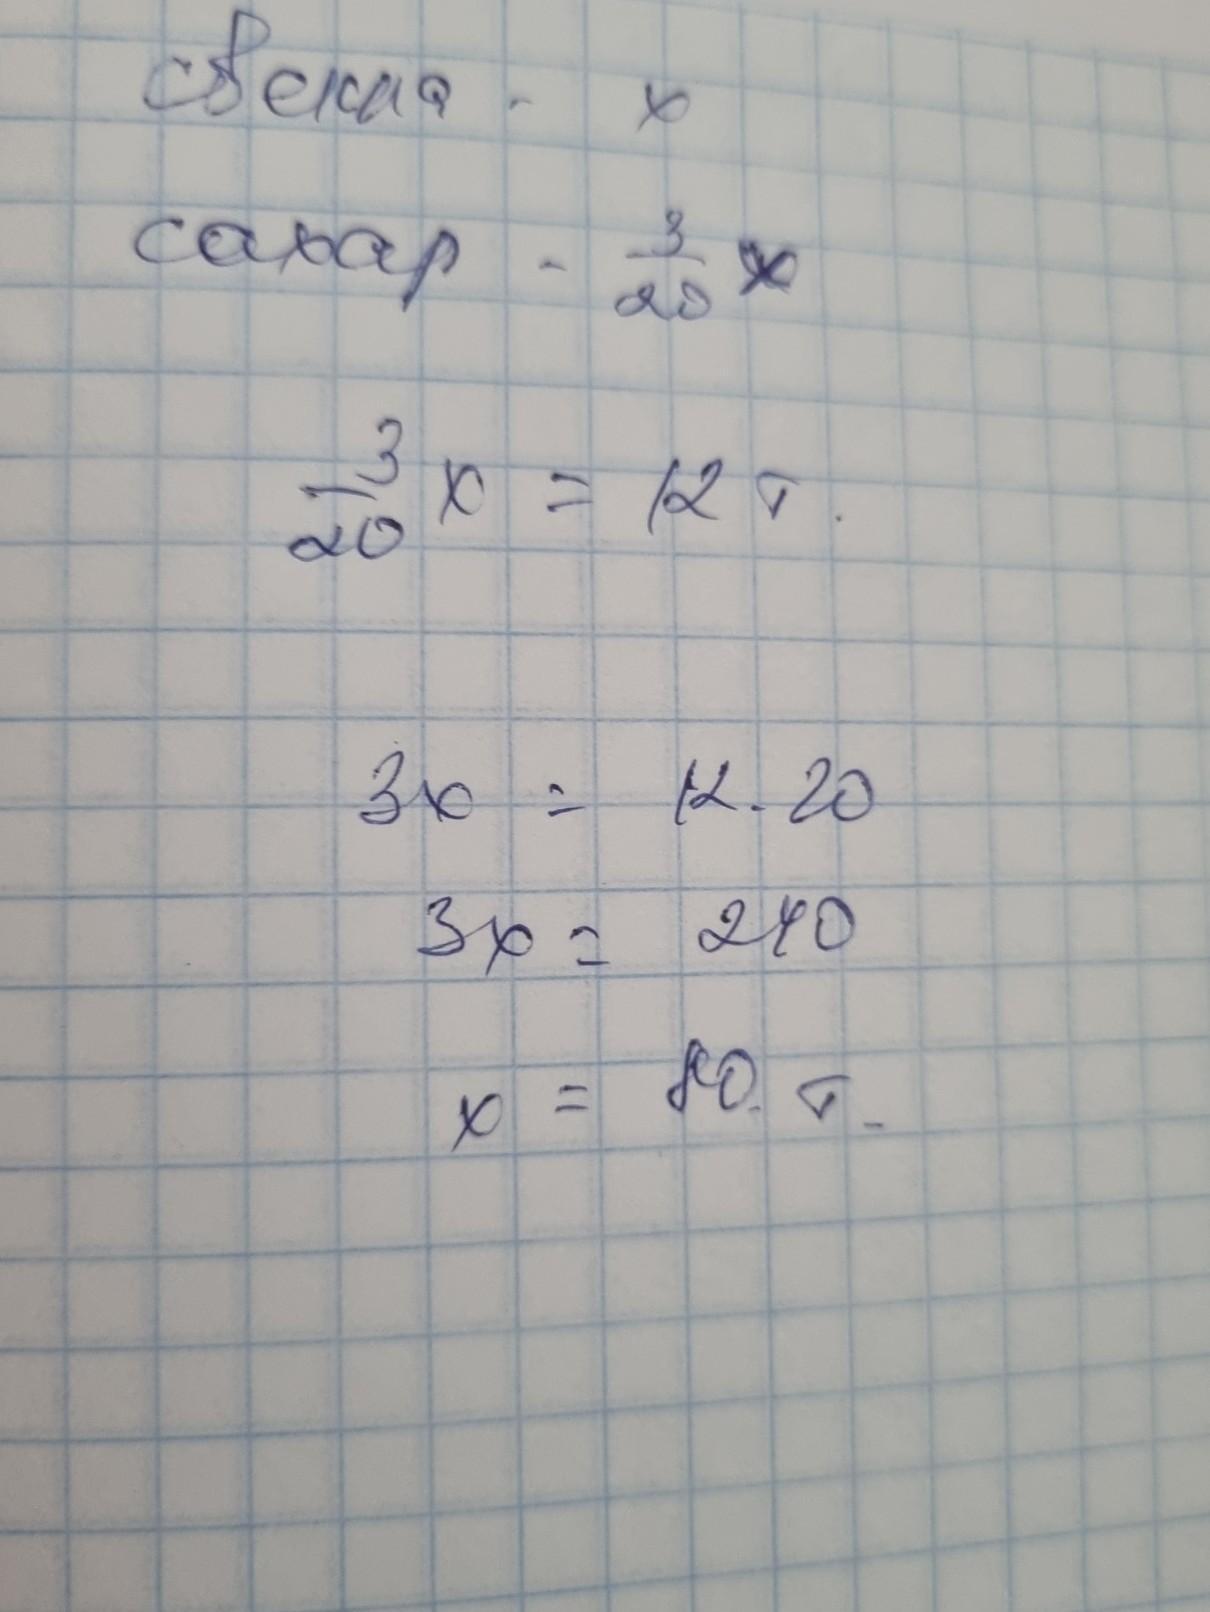 свекла - x
сахар - 3/20 x
3/20 x = 12 т.
3x = 12 . 20
3x = 240
x = 80. т.